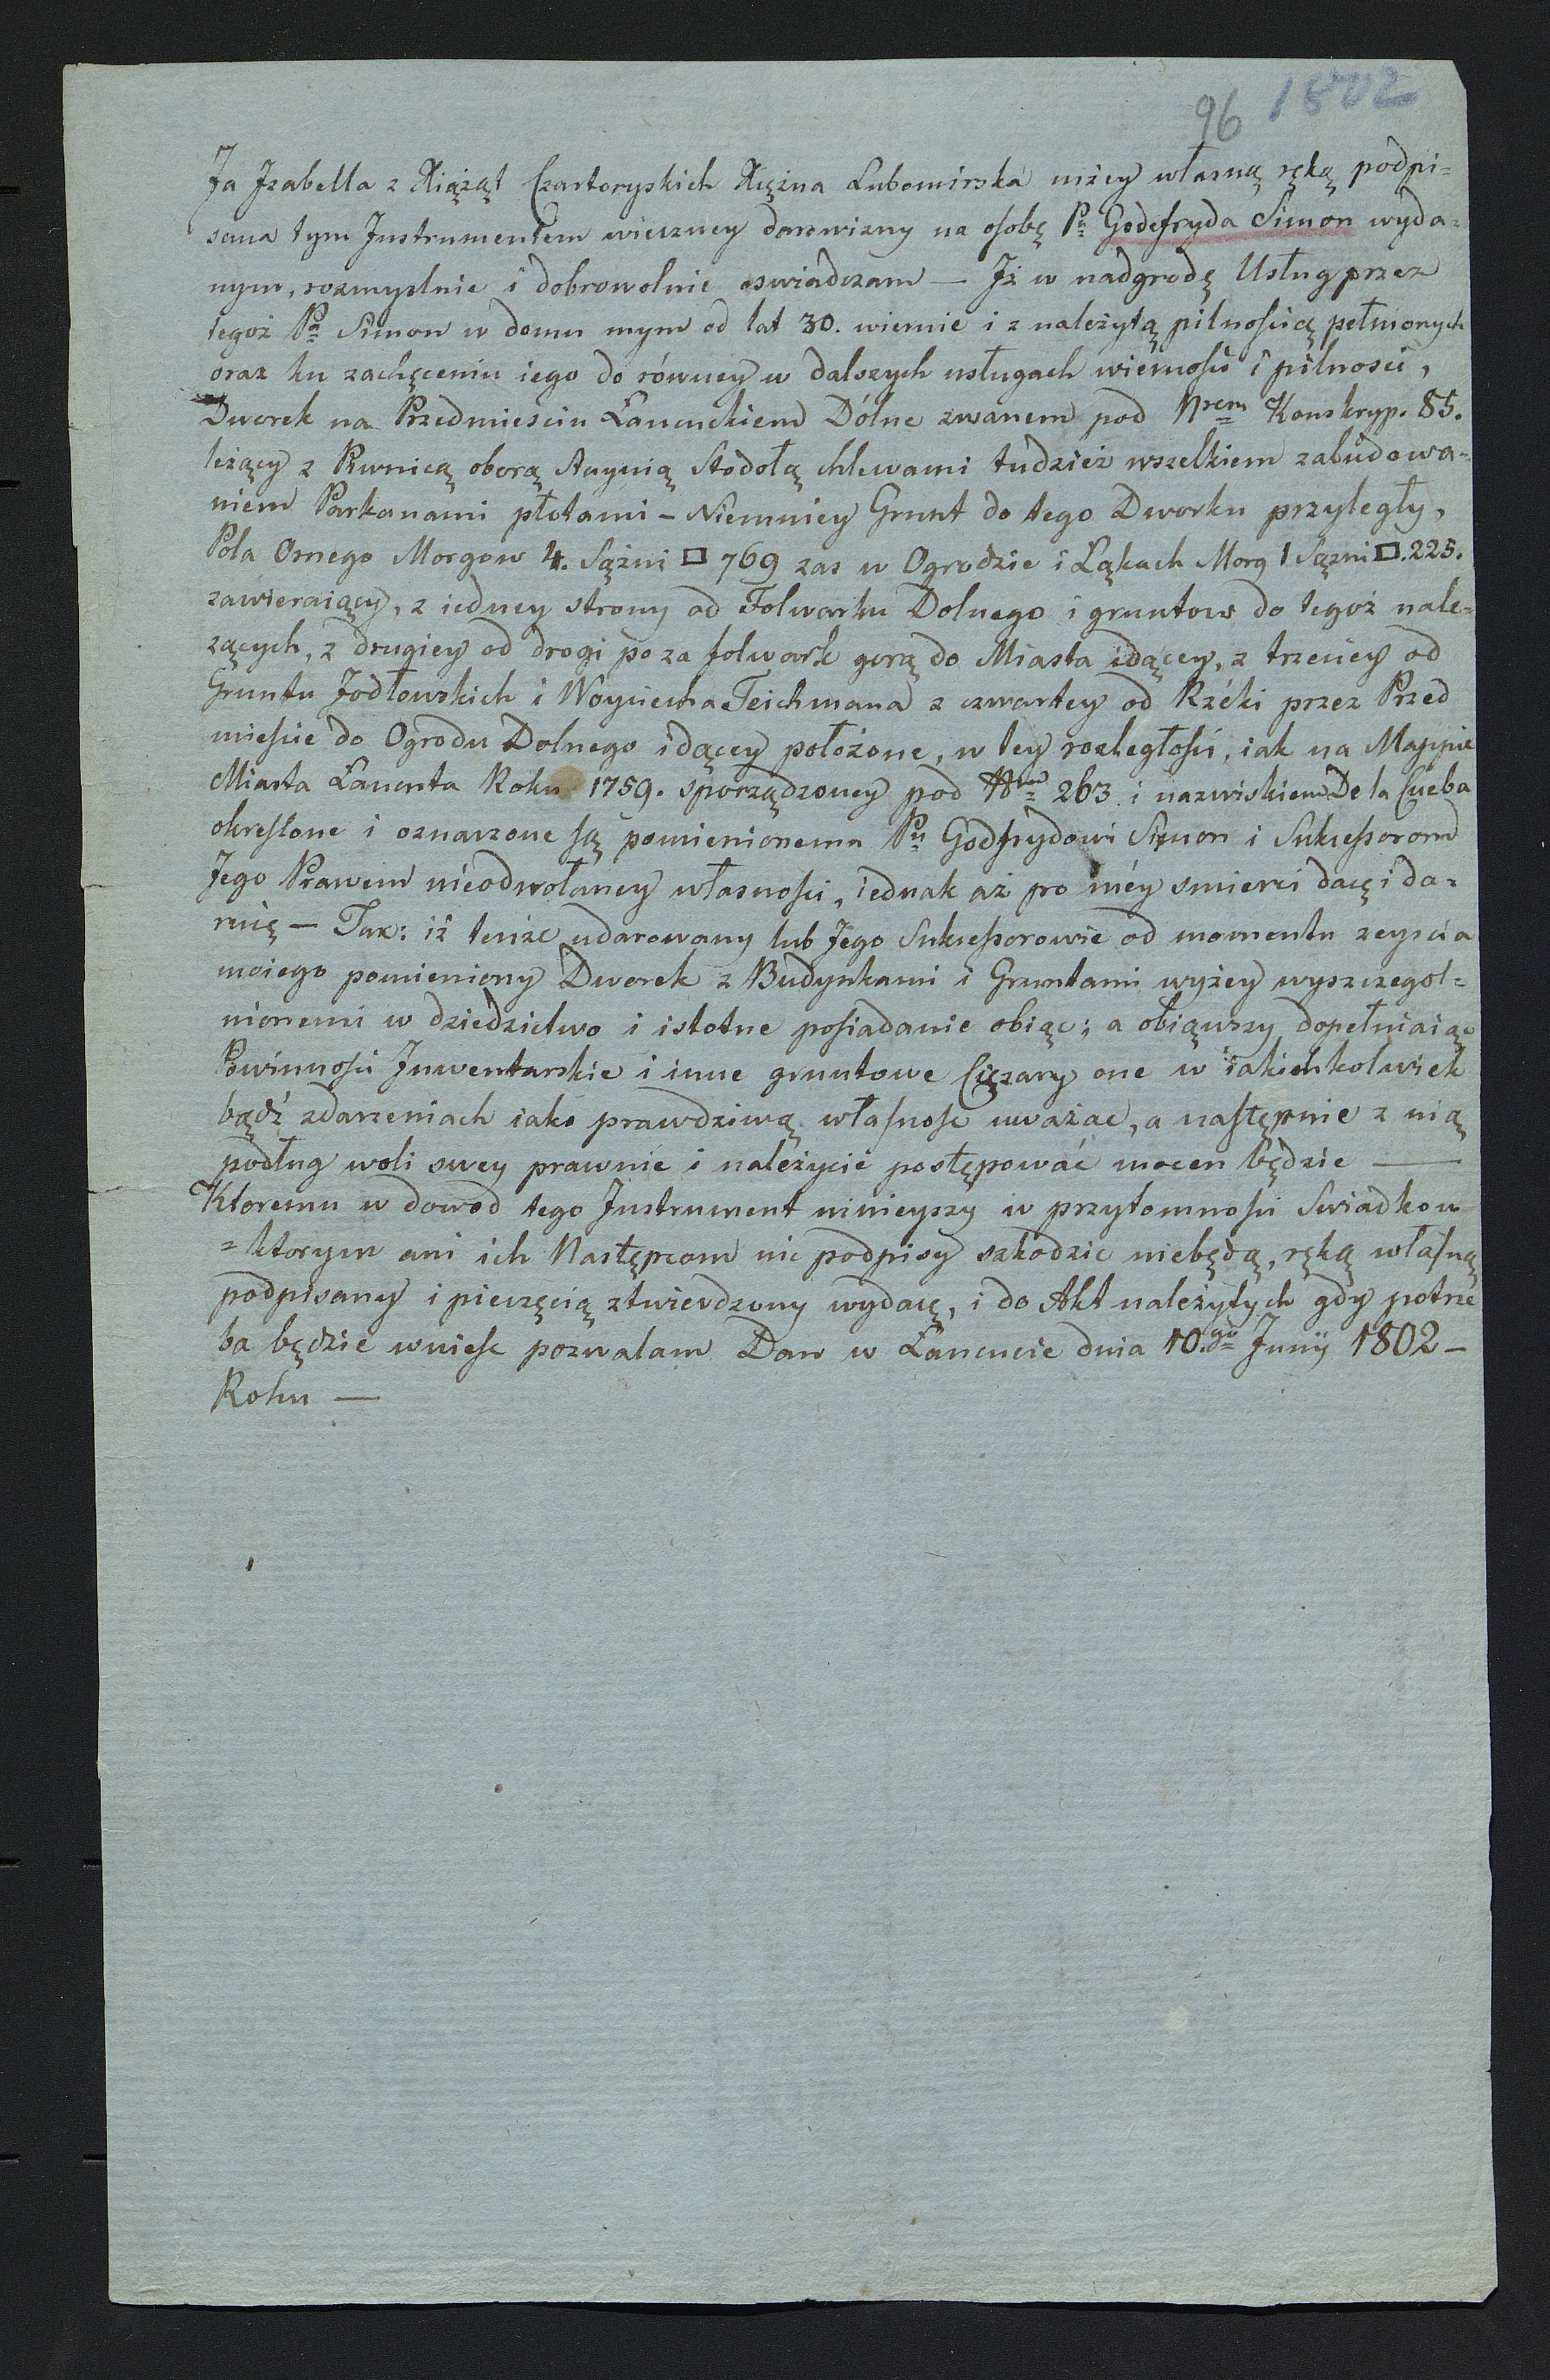 96 1802
Ja Jzabella z Xiążąt Czartoryskich Xiężna Lubomirska niżey własną ręką podpi=
sana tym Jnstrumentem wieczney darowizny na osobę Pa Godefryda Simon wyda=
nym, rozmyslnie i dobrowolnie oswiadczam — Jż w nadgrodę Usług przez
tegoż Pa Simon w domu mym od lat 30. wiernie i z należytą pilnością pełnionych
oraz ku zachęceniu iego do równey w dalszych usługach wiernośi i pilnosci,
Dworek na Przedmiesciu Łancuckiem Dólne zwanem pod Nrem Konskryp. 85.
leżący z Piwnicą oborą Staynią Stodołą chlewami tudzież wszelkiem zabudowa=
niem Parkanami płotami – Niemniey Grunt do tego Dworku przyległy,
Pola Ornego Morgow 4. Sążni □ 769 zas w Ogrodzie i Łąkach Morg 1 Sążni □. 225.
zawieraiący, z iedney strony od Folwarku Dolnego i gruntow do tegoż nale=
zących, z drugiey od drogi po za folwark gorą do Miasta idącey, z trzeciey od
Gruntu Jodłowskich i Woyciecha Teichmana z czwartey od Rzéki przez Przed
mieście do Ogrodu Dolnego idącey położone, w tey rozległości, iak na Mappie
Miasta Łancuta Roku 1759. sporządzoney pod Nrm 263 i nazwiskiem De la Cueba
okreslone i oznaczone są pomienionemu Pu Godfrydowi Simon i Sukcessorom
Jego Prawem nieodwołaney własnosci, iednak aż po méy smierci daię i da=
ruię — Tak: iż tenże udarowany lub Jego Sukcessorowie od momentu zeyscia
moiego pomieniony Dworek z Budynkami i Gruntami wyżey wyszczegol=
nionemi w dziedzictwo i istotne posiadanie obiąc; a obiąwszy dopełniaiąc
Powinnosci Jnwentarskie i inne gruntowe Ciężary one w iakichkolwiek
bądź zdarzeniach iako prawdziwą własnosc uważac, a następnie z nią
podług woli swey prawnie i należycie postępować mocen będzie —
Ktoremu w dowod tego Jnstrument ninieyszy w przytomnosci Swiadkow
=ktorym ani ich Następcom nic podpisy szkodzic niebędą, ręką własną
podpisany i pieczęcią ztwierdzony wydaię, i do Akt należytych gdy potrze
ba będzie wniesc pozwalam Dan w Łancucie dnia 10.go Junij 1802 –
Roku —